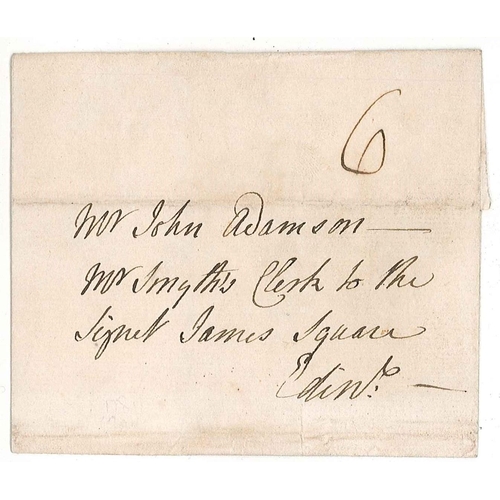 6
Mr John Adamson —
Mr Smyth's Clerk to the
Signet James Square
Edinr. —